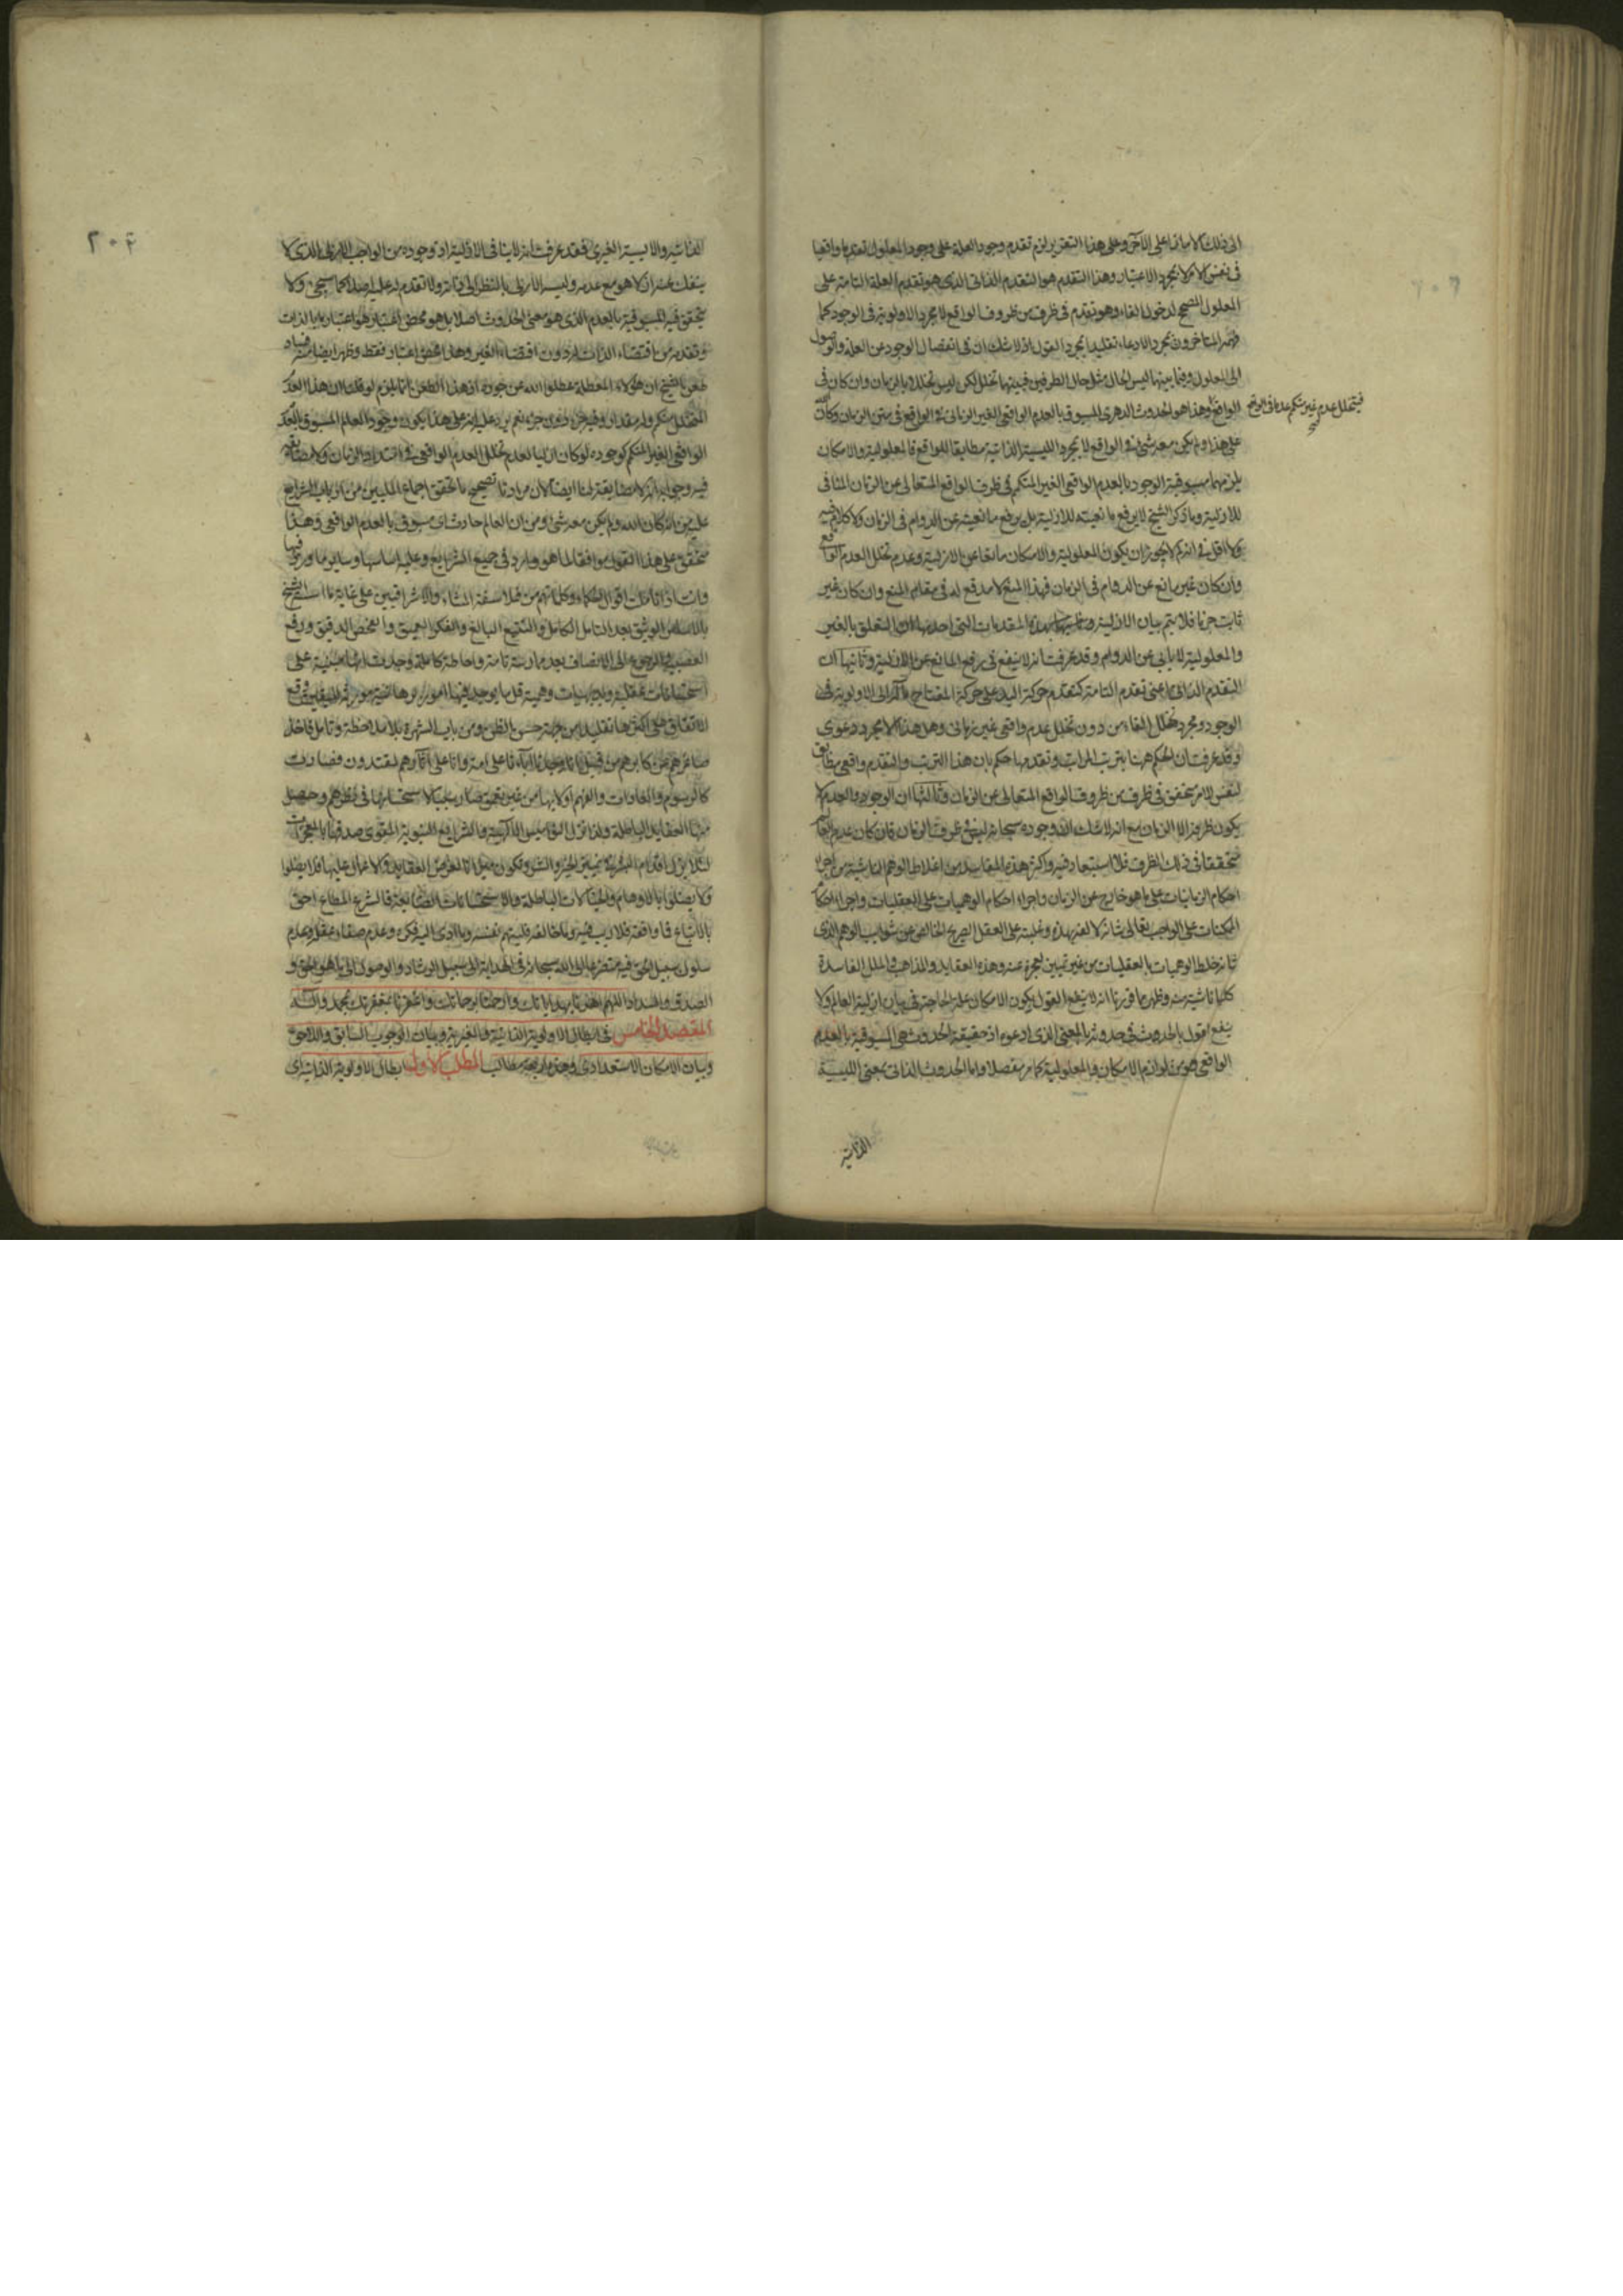 الى ذلك كلاما على الآخر وعلى هذا التقرير لزم تقدم وجود العلة على وجود المعلول تقدما واقعيا
فى نفس الامر لا بمجرد الاعتبار وهذا التقدم هو التقدم الذاتى الذى هو تقدم العلة التامة على
المعلول المصحح لدخول الفاء وهو تقدم فى ظرف من ظروف الواقع لا بمجرد الاولوية فى الوجود كما
فهمه المتاخرون بمجرد الادعاء تقليدا بمجرد القول اذ لا شك ان فى انفصال الوجود عن العلة والوصول
الى المعلول وفيما بينهما ليس الحال مثل حال الطرفين فبينهما تخلل لكن ليس تخللا بالزمان وان كان فى
فيتخلل عدم غير متكمم عدة فى الواقع
الواقع وهذا هو الحدوث الدهرى المسبوق بالعدم الواقعى الغير الزمانى فى الواقع فى متن الزمان وكان الله
على هذا ولم يكن معه شئ فى الواقع لا بمجرد الليسية الذاتية مطابقا للواقع فالمعلولية والامكان
يلزمهما مسبوقية الوجود بالعدم الواقعى الغير المتكمم فى ظرف الواقع المتعالى عن الزمان المنافى
للازلية وما ذكره الشيخ لا يرفع مانعيته للازلية بل يرفع مانعيته عن الدوام فى الزمان ولا كلام فيه
ولا اقل من انه لم لا يجوز ان يكون المعلولية والامكان مانعا عن الازلية وعدم تخلل العدم الواقع
وان كان غير مانع عن الدوام فى الزمان فهذا المنع لا مدفع له فى مقام المنع وان كان غير
ثابت جزما فلا يتم بيان الازلية بهذه المقدمات التى احدها ان التعلق بالغير
والمعلولية لا يابى عن الدوام وقد عرفت انه لا ينفع فى رفع المانع عن الازلية وثانيها ان
التقدم الذاتى اعنى تقدم التامة كتقدم حركة اليد على حركة المفتاح الى الاولوية فى
الوجود ومجرد تخلل الفاء من دون تخلل عدم واقعى غير زمانى وهل هذا الا بمجرد دعوى
وقد عرفت ان الحكم هنا بترتب المراتب وتقدمها حكم بان هذا الترتب والتقدم واقعى مطابق
لنفس الامر متحقق فى ظرف من ظروف الواقع المتعالى عن الزمان وثالثها ان الوجود والعدم لا
يكون ظرفه الا الزمان مع انه لا شك ان وجوده سبحانه ليس فى ظرف الزمان فان كان عدم العالم
متحققا فى ذلك الظرف فلا استبعاد فيه واكثر هذه المفاسد من اغلاط الوهم الناشية من اجراء
احكام الزمانيات على ما هو خارج عن الزمان واجراء احكام الوهميات على العقليات واجراء احكام
الممكنات على الواجب تعالى شانه لالفه بهذه وغلبته على العقل الصريح الخالص عن شوايب الوهم الذى
شانه خلط الوهميات بالعقليات من غير تميين لعجزه عنه وهذه العقايد والمذاهب والملل الفاسدة
كلها ناشية منه وظهر مما قررنا انه لا ينفع القول بكون الامكان علة الحاجة فى بيان ازلية العالم ولا
ينفع القول بالحدوث فى حدوثه بالمعنى الذى ادعوه اذ حقيقة الحدوث هى المسبوقية بالعدم
الواقعى هو من لوازم الامكان والمعلولية كما مر مفصلا واما الحدوث الذاتى بمعنى الليسية
الذاتية
٢٠٤
الذاتية والايسية الغيرى فقد عرفت انه لا ينافى الازلية اذ وجوده من الواجب الازلى الذى لا
ينفك عنه اذ لا هو مع عدمه وليسه الازلى بالنظر الى ذاته ولا تقدم له عليه اصلا كما سيجئ ولا
يتحقق فيه المسبوقية بالعدم الذى هو معنى الحدوث اصلا بل هو محض اعتبار هو اعتباره بالذات
وتقدمه من اقتضاء الذات له دون اقتضاء الغير وهذا محض اعتبار فقط وظهر ايضا منه فساد
طعن الشيخ ان هؤلاء المعطلة عطلوا الله عن جوده اذ هذا الطعن انما يلزم لو قلنا ان هذا العدم
المتخلل متكمم وله مقدار وفيه جزء دون جزء نعم يرد عليه انه على هذا يكون وجود العالم المسبوق بالعدم
الواقعى الغير المتكمم كوجوده لو كان ازليا لعدم تخلل العدم الواقعى فى امتداد الزمان ولا مضايقة
فيه وجوابه انه لا مضايقة لنا ايضا لان مرادنا تصحيح ما تحقق اجماع المليين من ارباب الشرايع
عليه من انه كان الله ولم يكن معه شئ ومن ان العالم حادث اى مسبوق بالعدم الواقعى وهذا
متحقق على هذا القول موافقا لما هو وارد فى جميع الشرايع وعليه اساسها وساير ما ورد فيها
وانت اذا تاملت اقوال الحكماء وكلماتهم من فلاسفة المشاء والاشراقيين على غاية ما
بالاساس الوثيق بعد التامل الكامل والتتبع البالغ والفكر العميق والفحص الدقيق ورفع
العصبية والرجوع الى الانصاف بعد ممارسة تامة واحاطة كاملة وجدت انها مبنية على
استحسانات عقلية وبديهيات وهمية قل ما يوجد فيها امور برهانية مورثة لليقين وقع
الاتفاق على اكثرها تقليدا من جهة حسن الظن ومن باب الشهرة بلا ملاحظة وتامل فاخذ
صاغرهم عن كابرهم من قبيل انا وجدنا آباءنا على امة وانا على آثارهم لمقتدون فصارت
كالرسوم والعادات من غير تحقق فى نظرهم وحصل
منها العقايد الباطلة ولذا نزل النواميس الالهية والشرايع النبوية المقوى صدقها بالمعجزات
لئلا يزل اقدام البشرية تميين الخير والشر وتكون ميزانا لعرض العقايد والاعمال عليها فلا يضلوا
ولا يضلوا بالاوهام والخيالات الباطلة والاستحسانات الضايعة فالشرع المطاع احق
بالاتباع فما وافقه فلا ريب فيه وما خالفه فليتهم نفسه وما ادى اليه فكره وعدم صفاء عقله وعدم
سلوك سبيل الحق فيه متضرعا الى الله سبحانه فى الهداية الى سبيل الرشاد والوصول الى ما هو الحق و
الصدق والسداد اللهم اهدنا بهداياتك وارحمنا برحماتك واغفرنا بمغفرتك بمحمد وآله
المقصد الخامس فى ابطال الاولوية الذاتية والغيرية وبيان الوجوب السابق واللاحق
وبيان الامكان الاستعدادى وهذه اربعة مطالب المطلب الاول ابطال الاولوية الذاتية اى